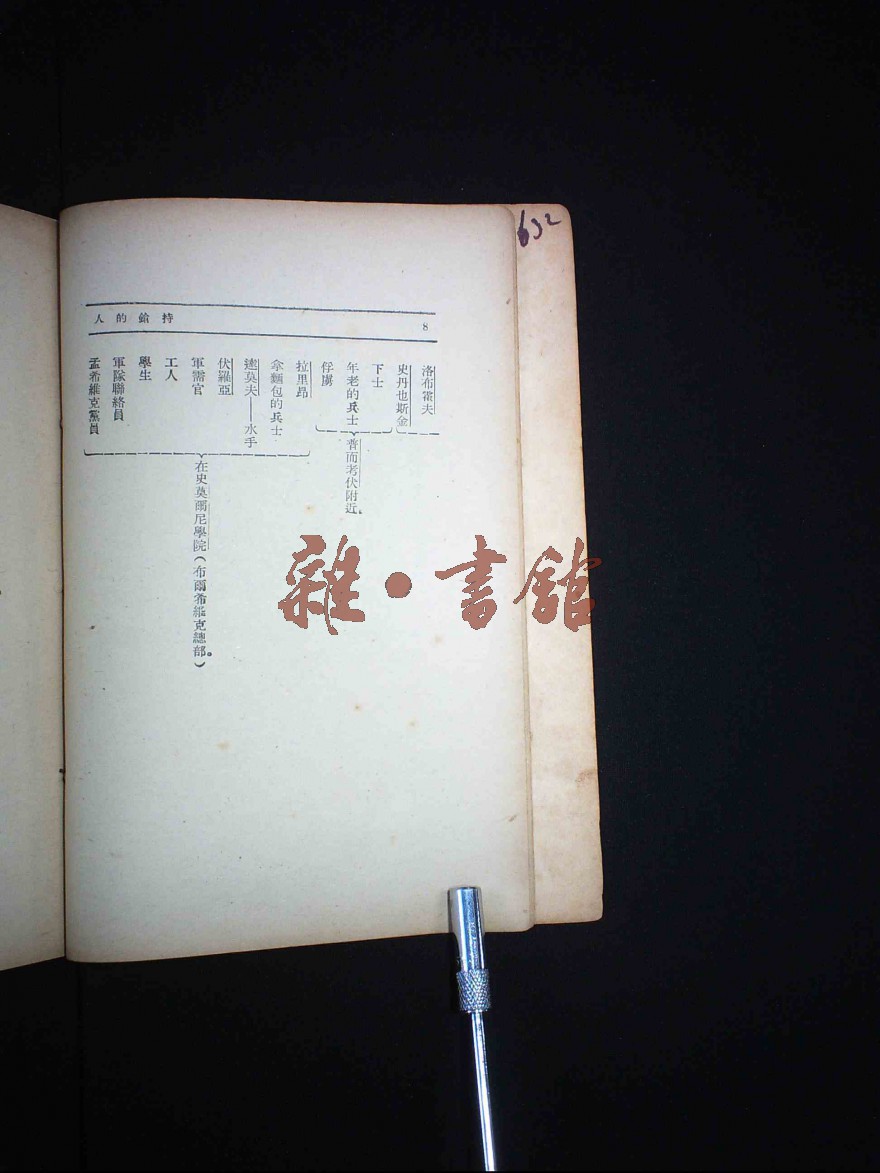 632
持鎗的人
8
洛布霍夫
史丹也斯金
下士
年老的兵士
俘虜
普而考伏附近。
拉里昂
拿麵包的兵士
達莫夫——水手
伏羅亞
軍需官
工人
學生
軍隊聯絡員
孟希維克黨員
在史莫爾尼學院(布爾希維克總部。)
雜·書館